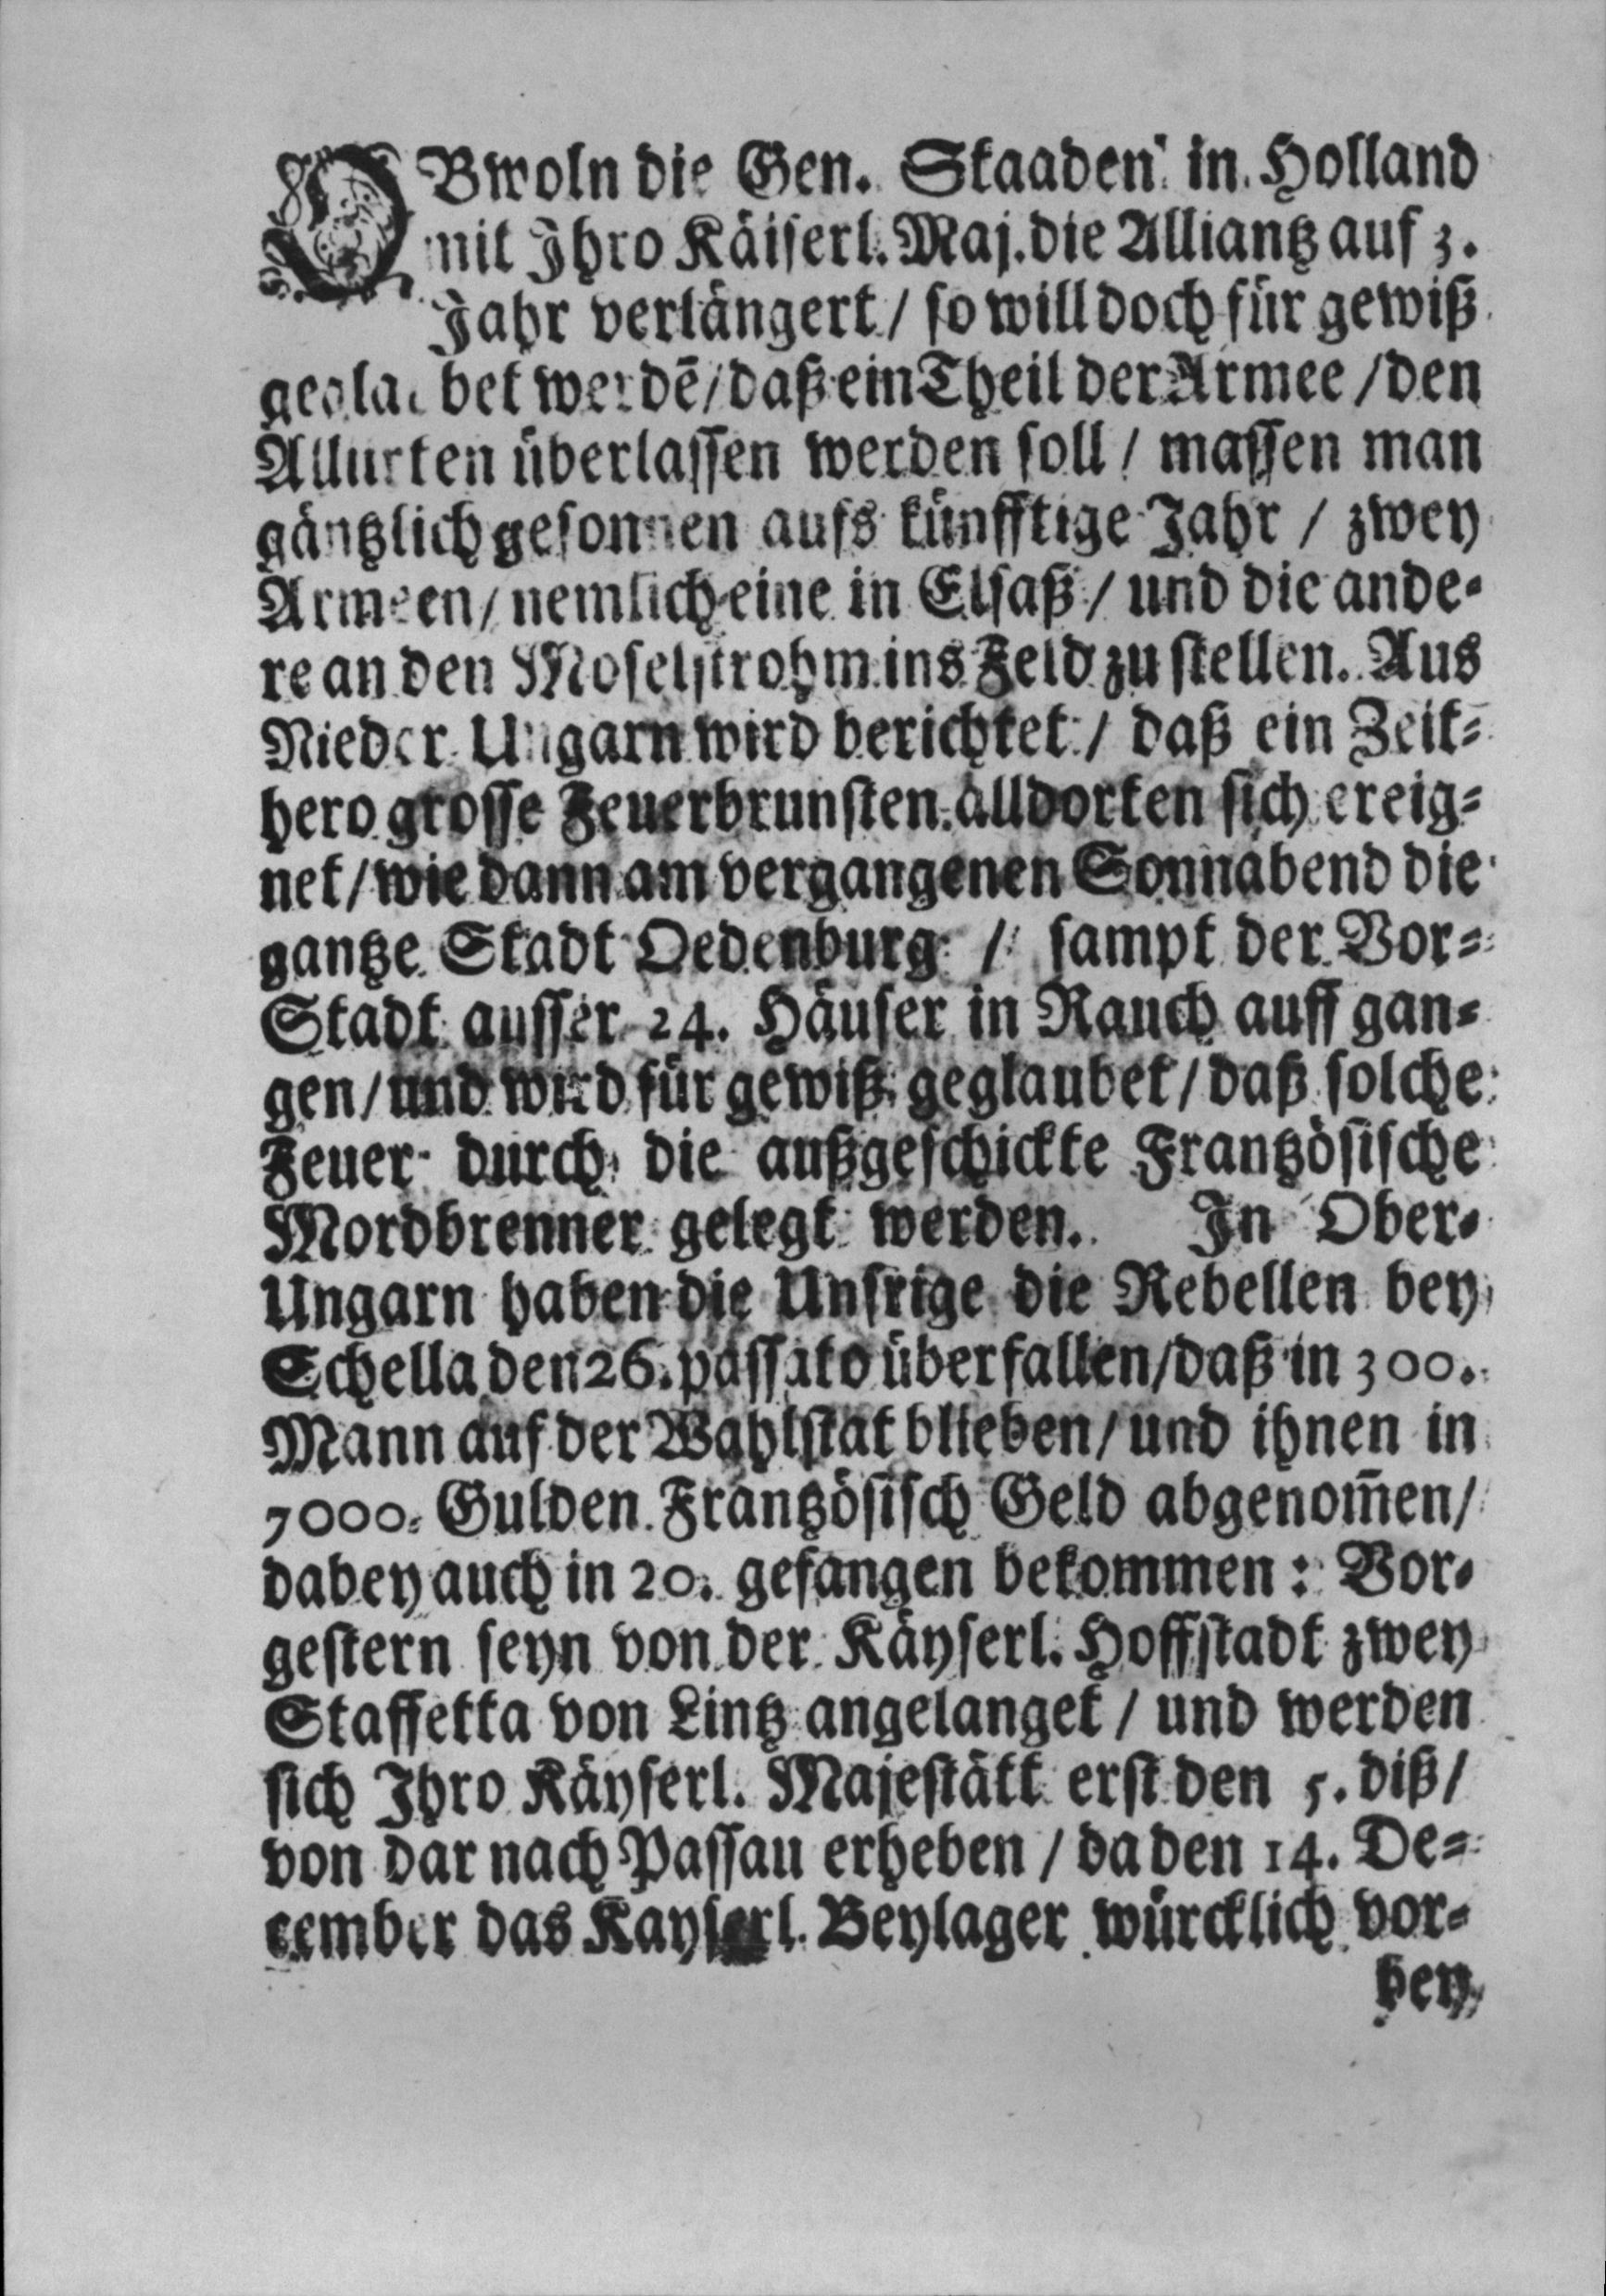 OBwoln die Gen. Staaden in Holland
mit Jhro Käiserl. Maj. die Alliantz auf 3.
Jahr verlängert / so will doch für gewiß
geglaubet werdē / daß ein Theil der Armee / den
Alliirten überlassen werden soll / massen man
gäntzlich gesonnen aufs künfftige Jahr / zwey
Armeen / nemlich eine in Elsaß / und die ande-
re an den Moselstrohm ins Feld zu stellen. Aus
Nieder Ungarn wird berichtet / daß ein Zeit-
hero grosse Feuerbrunsten alldorten sich ereig-
net / wie dann am vergangenen Sonnabend die
gantze Stadt Oedenburg / sampt der Vor-
Stadt ausser 24. Häuser in Rauch auff gan-
gen / und wird für gewiß geglaubet / daß solche
Feuer durch die außgeschickte Frantzösische
Mordbrenner gelegt werden. Jn Ober-
Ungarn haben die Unsrige die Rebellen bey
Schella den 26. passato überfallen / daß in 300.
Mann auf der Wahlstat blieben / und ihnen in
7000. Gulden Frantzösisch Geld abgenom̃en /
dabey auch in 20. gefangen bekommen: Vor-
gestern seyn von der Käyserl. Hoffstadt zwey
Staffetta von Lintz angelanget / und werden
sich Jhro Käyserl. Majestätt erst den 5. diß /
von dar nach Passau erheben / da den 14. De-
cember das Kayserl. Beylager würcklich vor-
bey